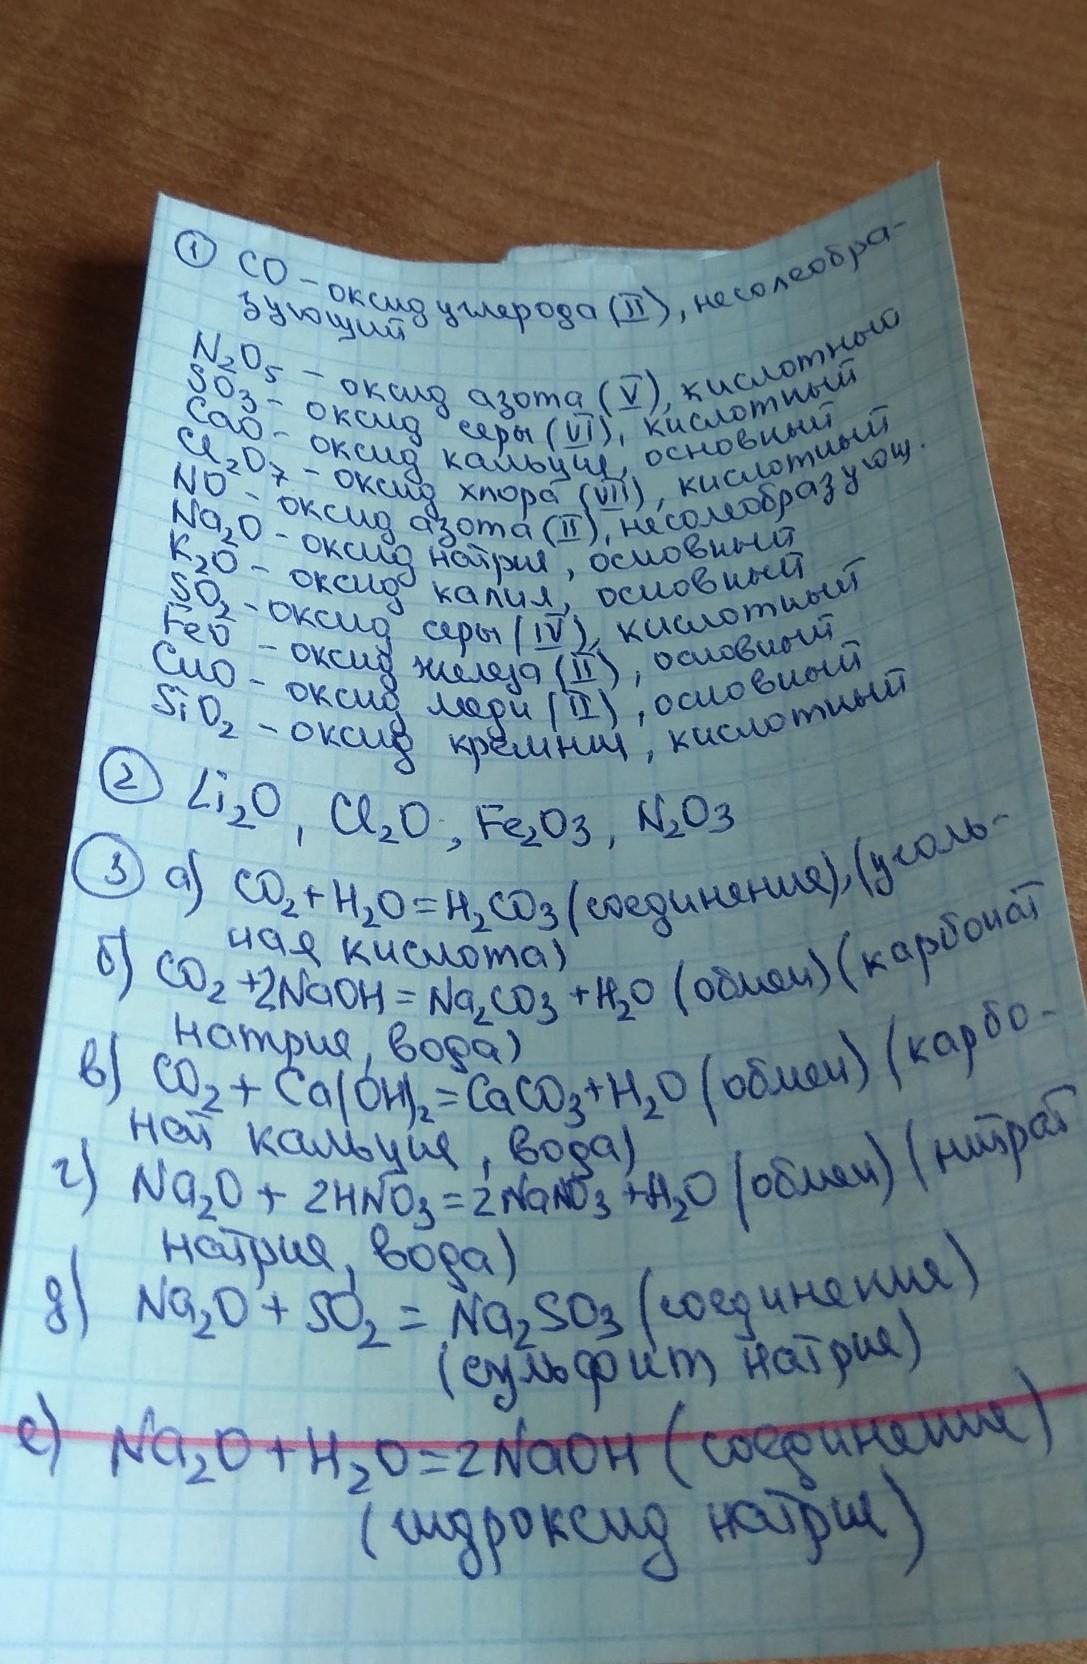 ① CO – оксид углерода (II), несолеобра-
зующий
N₂O₅ – оксид азота (V), кислотный
SO₃ – оксид серы (VI), кислотный
CaO – оксид кальция, основный
Cl₂O₇ – оксид хлора (VII), кислотный
NO – оксид азота (II), несолеобразующ.
Na₂O – оксид натрия, основный
K₂O – оксид калия, основный
SO₂ – оксид серы (IV), кислотный
FeO – оксид железа (II), основный
CuO – оксид меди (II), основный
SiO₂ – оксид кремния, кислотный
② Li₂O, Cl₂O, Fe₂O₃, N₂O₃
③ а) CO₂ + H₂O = H₂CO₃ (соединения), (уголь-
ная кислота)
б) CO₂ + 2NaOH = Na₂CO₃ + H₂O (обмен) (карбонат
натрия, вода)
в) CO₂ + Ca(OH)₂ = CaCO₃ + H₂O (обмен) (карбо-
нат кальция, вода)
г) Na₂O + 2HNO₃ = 2NaNO₃ + H₂O (обмен) (нитрат
натрия, вода)
д) Na₂O + SO₂ = Na₂SO₃ (соединения)
(сульфит натрия)
е) Na₂O + H₂O = 2NaOH (соединения)
(гидроксид натрия)